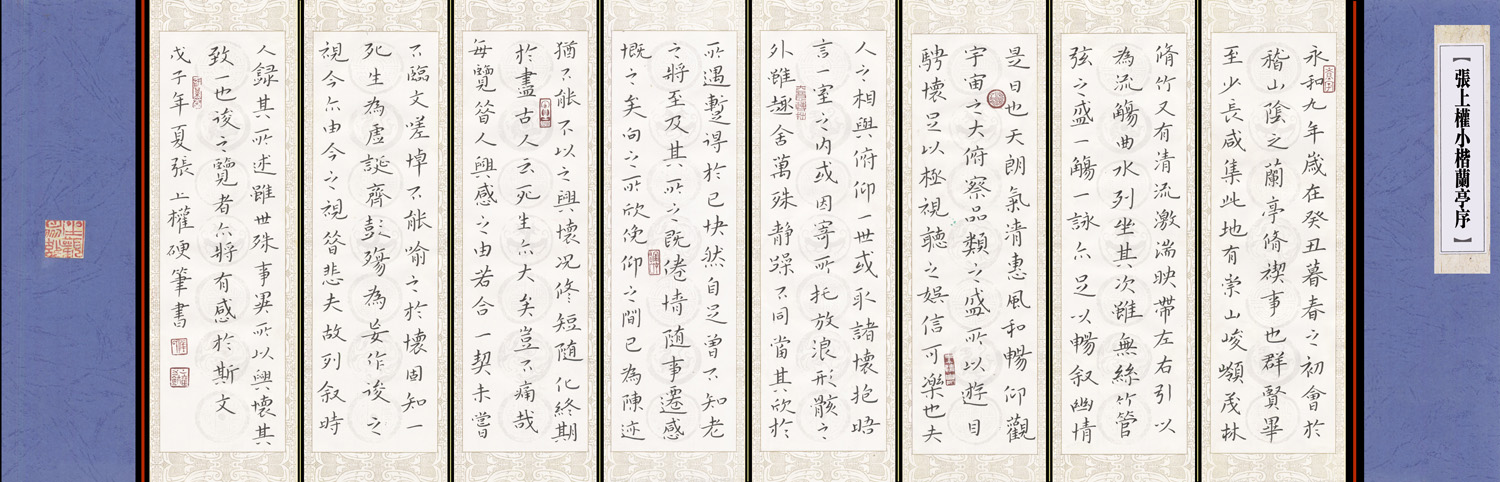 【張上權小楷蘭亭序】
永和九年歲在癸丑暮春之初會於
稽山陰之蘭亭脩禊事也群賢畢
至少長咸集此地有崇山峻嶺茂林
脩竹又有清流激湍映帶左右引以
為流觴曲水列坐其次雖無絲竹管
弦之盛一觴一詠亦足以暢叙幽情
是日也天朗氣清惠風和暢仰觀
宇宙之大俯察品類之盛所以遊目
騁懷足以極視聽之娛信可樂也夫
人之相與俯仰一世或取諸懷抱晤
言一室之內或因寄所托放浪形骸之
外雖趣舍萬殊静躁不同當其欣於
所遇蹔得於己快然自足曾不知老
之將至及其所之既倦情随事遷感
慨之矣向之所欣俛仰之間已為陳迹
猶不能不以之興懷况修短随化終期
於盡古人云死生亦大矣豈不痛哉
每覽昝人興感之由若合一契未嘗
不臨文嗟悼不能喻之於懷固知一
死生為虛誕齊彭殤為妄作後之
視今亦由今之視昝悲夫故列叙時
人錄其所述雖世殊事異所以興懷其
致一也後之覽者亦將有感於斯文
戊子年夏張上權硬筆書